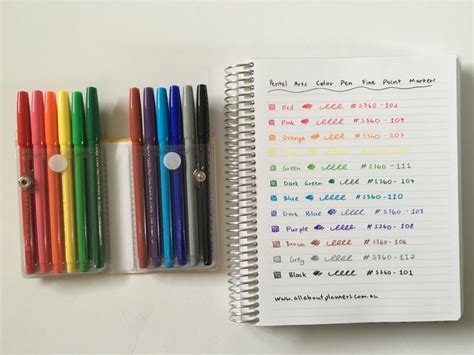 Pentel Arts Color Pen Fine Point Markers
Red #S360-102
Pink #S360-109
Orange
Green #S360-111
Dark Green #S360-104
Blue #S360-110
Dark Blue #S360-103
Purple
Brown #S360-106
Grey #S360-112
Black #S360-101
www.allaboutplanners.com.au